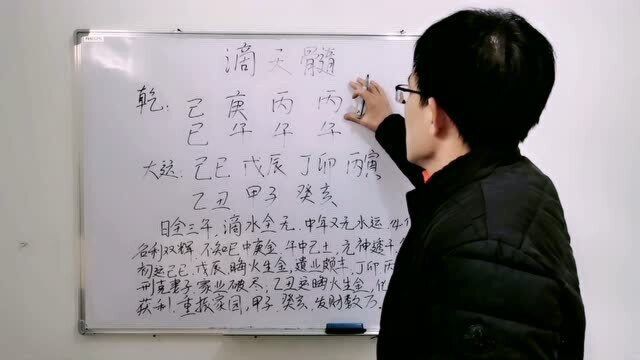 滴天髓
乾: 己 庚 丙 丙
巳 午 午 午
大运: 己巳 戊辰 丁卯 丙寅
乙丑 甲子 癸亥
日全三午,滴水全无,中年又无水运,
名利双辉,不知巳中庚金,午中己土,元神透干
初运己巳、戊辰晦火生金,遗业颇丰,丁卯丙
刑克妻子,家业破尽,乙丑运晦火生金,
获利,重振家园,甲子、癸亥,发财数万。